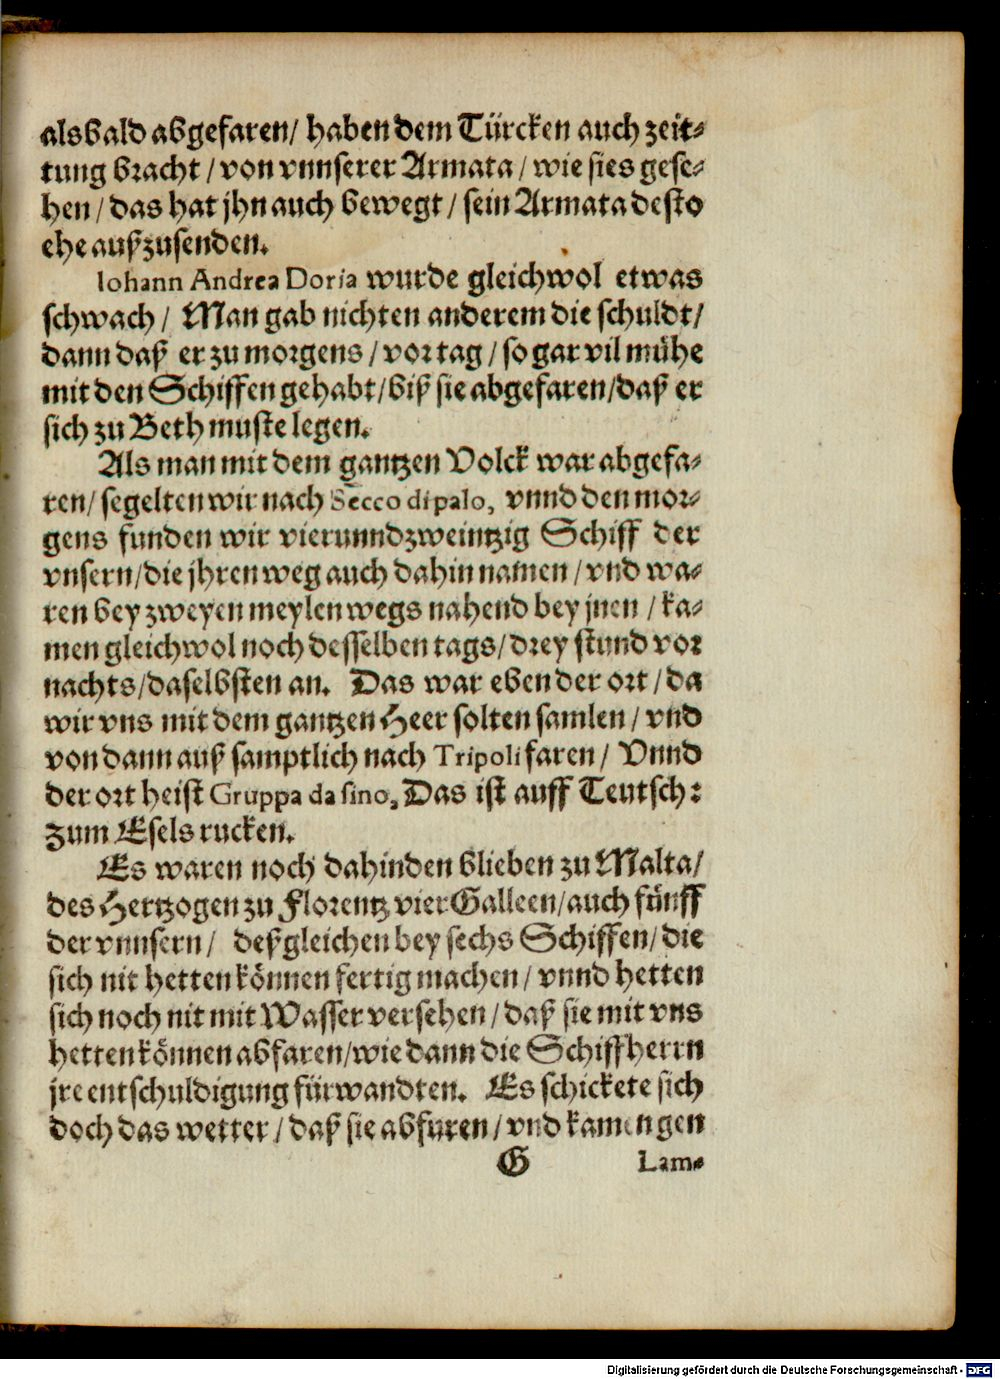 alsbald abgefaren/ haben dem Türcken auch zeit⸗
tung bracht / von vnnserer Armata / wie sies gese⸗
hen / das hat jhn auch bewegt / sein Armata desto
ehe außzusenden.
Iohann Andrea Doria wurde gleichwol etwas
schwach / Man gab nichten anderem die schuldt/
dann daß er zu morgens / vor tag / so gar vil mühe
mit den Schiffen gehabt/biß sie abgefaren/daß er
sich zu Beth muste legen.
Als man mit dem gantzen Volck war abgefa⸗
ren/ segelten wir nach Secco di palo, vnnd den mor⸗
gens funden wir vierunndzweintzig Schiff der
vnsern/die jhren weg auch dahin namen / vnd wa⸗
ren bey zweyen meylen wegs nahend bey jnen / ka⸗
men gleichwol noch desselben tags/drey stund vor
nachts/daselbsten an. Das war eben der ort / da
wir vns mit dem gantzen Heer solten samlen / vnd
von dann auß samptlich nach Tripoli faren / Vnnd
der ort heist Gruppa da sino, Das ist auff Teutsch:
zum Esels rucken.
Es waren noch dahinden blieben zu Malta/
des Hertzogen zu Florentz vier Galleen/auch fünff
der vnnsern / deßgleichen bey sechs Schiffen/die
sich nit hetten können fertig machen / vnnd hetten
sich noch nit mit Wasser versehen / daß sie mit vns
hetten können abfaren/wie dann die Schiffherrn
jre entschuldigung fürwandten. Es schickete sich
doch das wetter / daß sie abfuren / vnd kamen gen
G Lam⸗
Digitalisierung gefördert durch die Deutsche Forschungsgemeinschaft - DFG